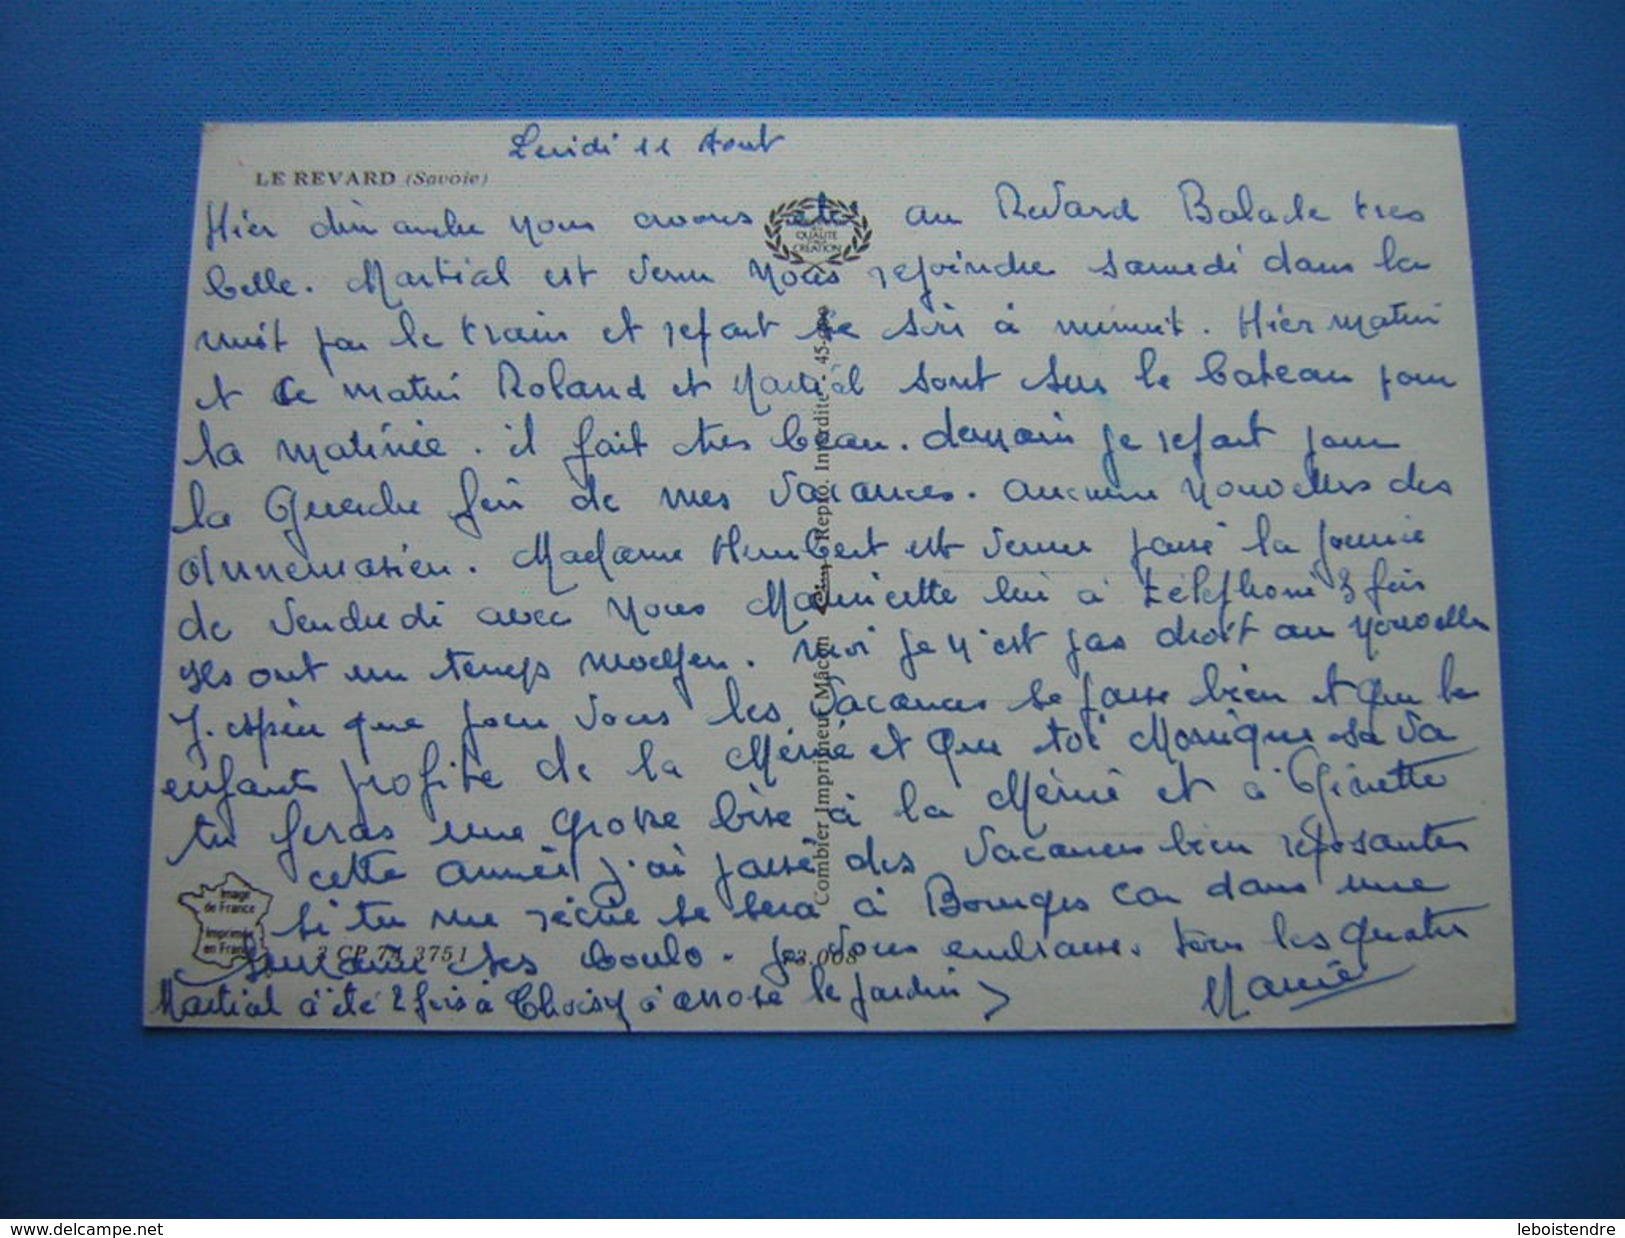 Lundi 11 Aout
LE REVARD (Savoie)
Hier dimanche nous avons été au Revard Balade tres
belle. Martial est venu nous rejoindre samedi dans la
nuit par le train et repart ce soir à minuit. Hier matin
et ce matin Roland et Martial sont sur le bateau pour
la matinée. il fait tres beau. demain je repart pour
la Guerche fin de mes vacances. aucune nouvelles des
Annemasien. Madame Humbert est venue passé la journée
de vendredi avec nous Mauricette lui à téléphoné 3 fois
Ils ont un temps moyen. moi je n'est pas droit au nouvelles
J. espère que pour vous les vacances se passe bien et que les
enfants profite de la Mémé et que toi Monique sa va
tu feras une grosse bise à la Mémé et à Ginette
cette année j'ai passé des vacances bien reposantes
si tu me récris se sera à Bourges car dans une
semaine tes boulo. je vous embrasse. tous les quatres
Martial à été 2 fois à Choisy à arrosé le jardin
Mamie
QUALITÉ
CREATION
Combier Imprimeur Mâcon "Cim" Repro. Interdite - 45-
Image
de France
Imprimée
en France
3 CP 74 3751
73.008
www.delcampe.net
leboistendre